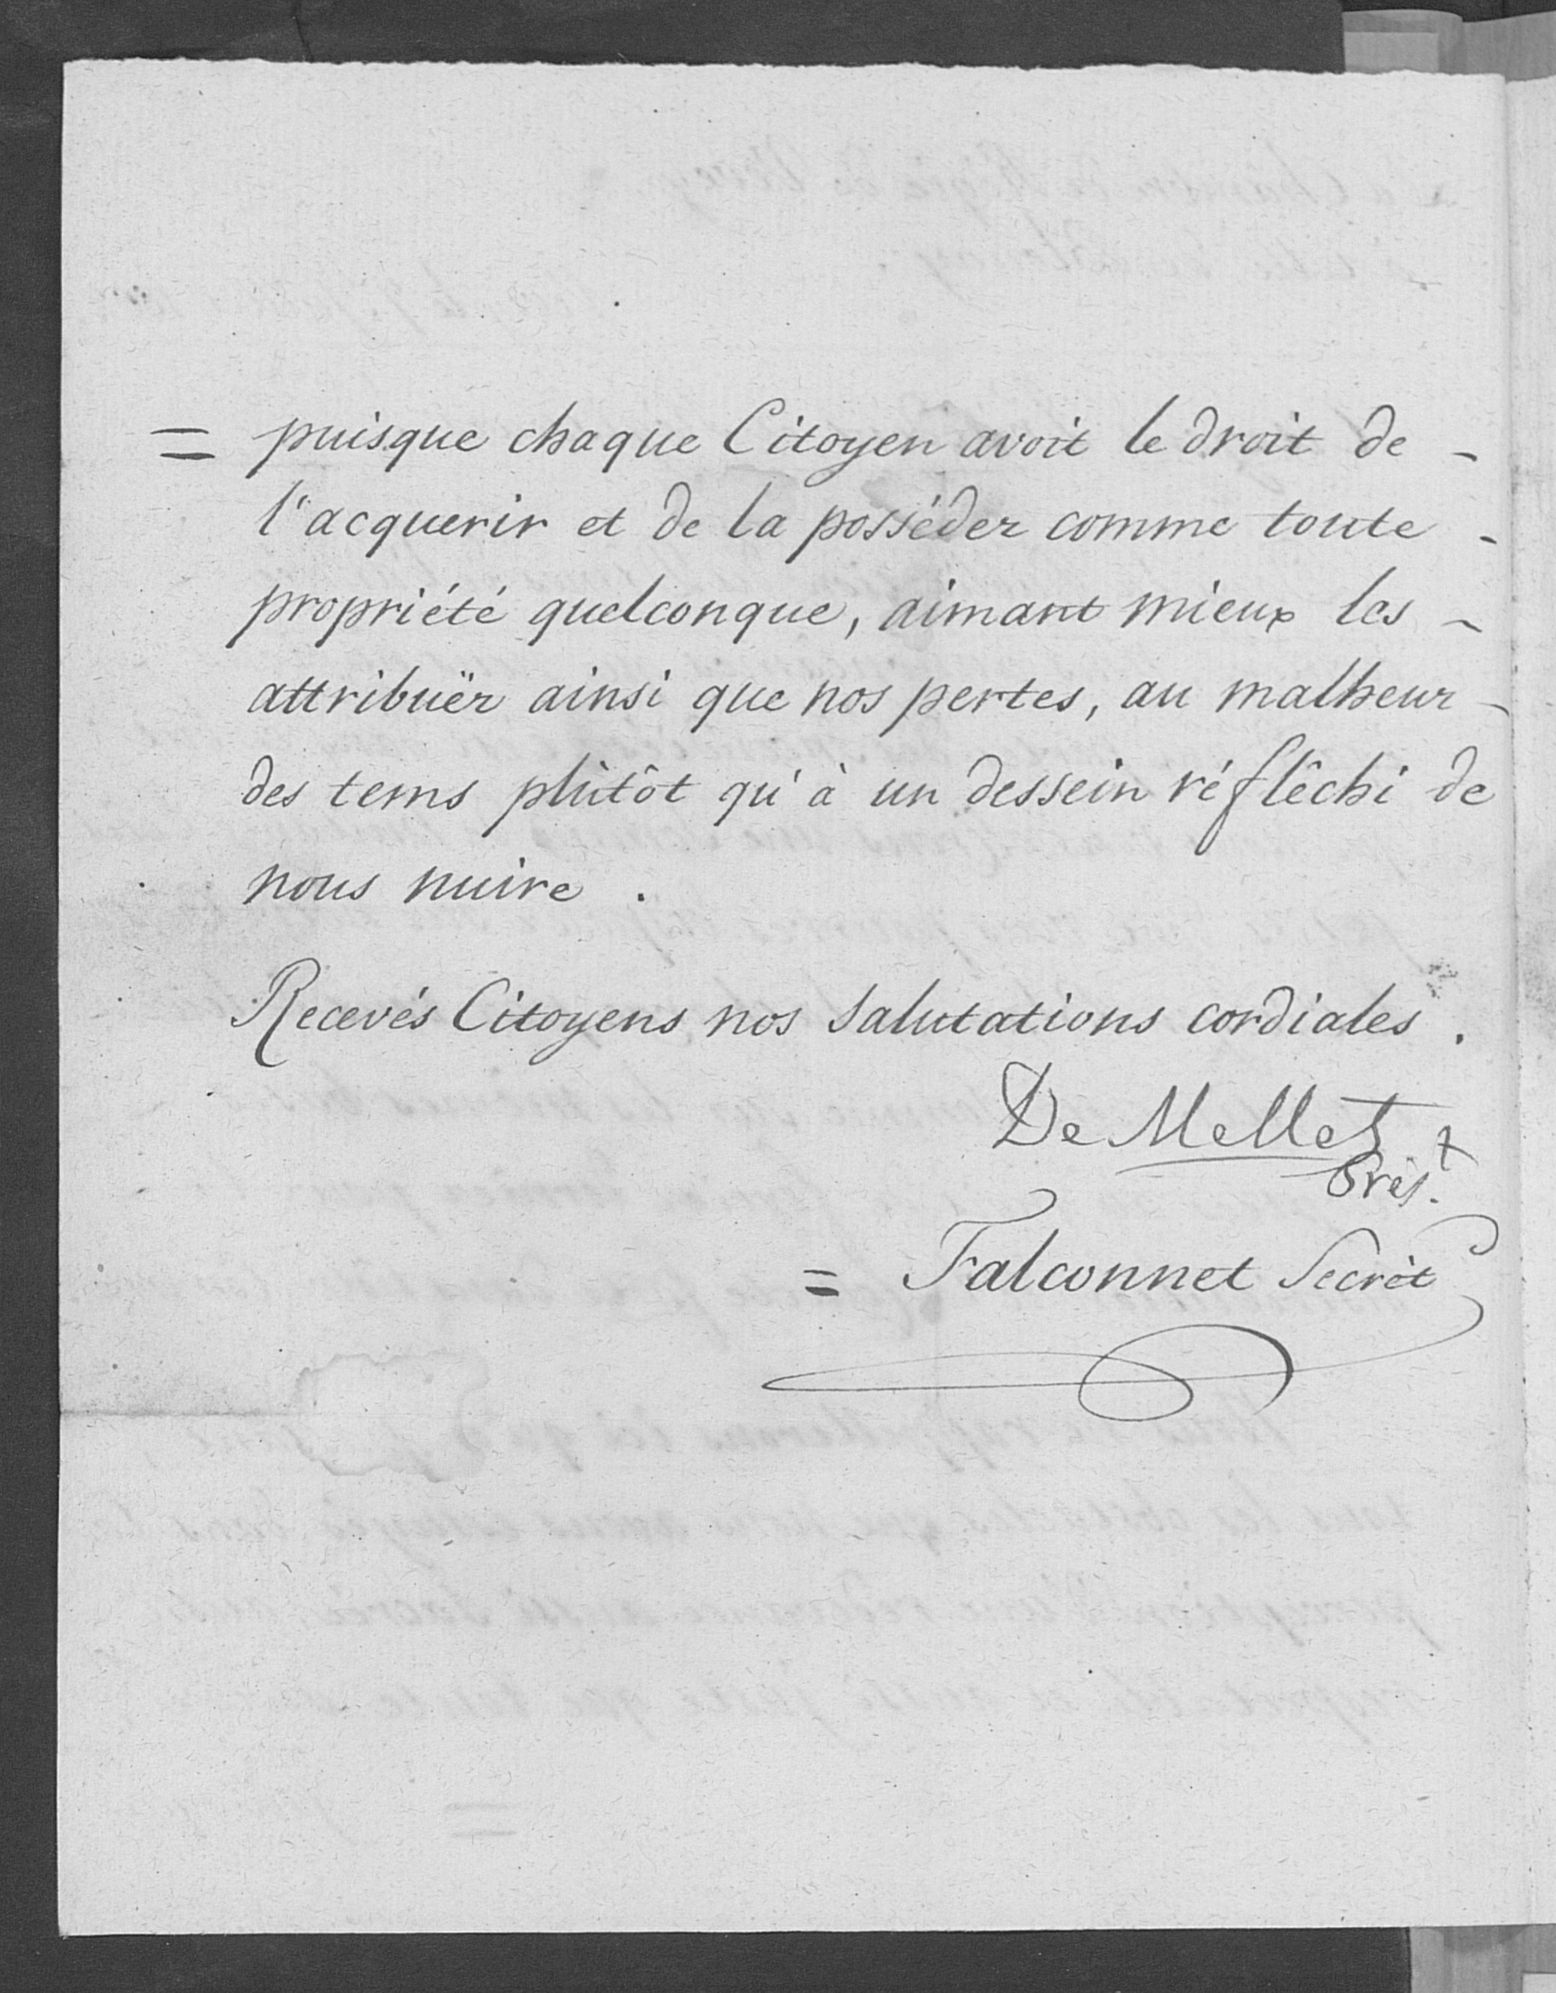 = puisque chaque Citoyen avoit le droit de -
l'acquerir et de la posséder comme toute -
propriété quelconque, aimant mieux les -
attribuër ainsi que nos pertes, au malheur -
des tems plùtôt qu'à un dessein réflêchi de
nous nuire .
Recevés Citoyens nos salutations cordiales .
De Mellet
Prés.t
= Falconnet Secrèt